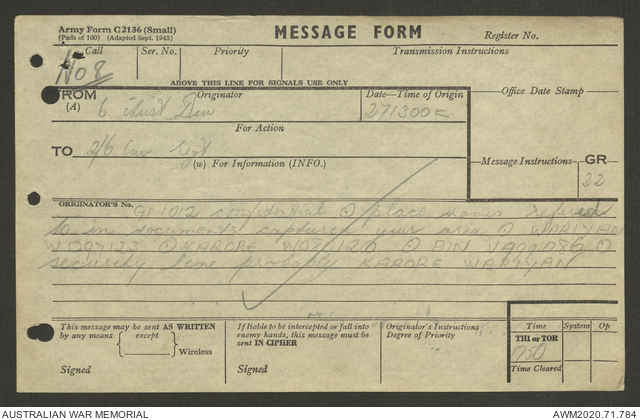 Army Form C2136 (Small)
(Pads of 100) (Adapted Sept. 1943)
MESSAGE FORM
Register No.
Call
Ser. No.
Priority
Transmission Instructions
No 8
ABOVE THIS LINE FOR SIGNALS USE ONLY
FROM
(A)
Originator
Date—Time of Origin
Office Date Stamp
6 Aust Div
271300K
For Action
TO
2/6 Cav Regt
(w) For Information (INFO.)
Message Instructions
GR
22
ORIGINATOR'S No.
G1012 confidential ⊙ place names referred
to in documents captured your area ⊙ WARIYAN
⊙ KARORE ⊙ AIN ⊙
security line probably KARORE WARIYAN
This message may be sent AS WRITTEN
by any means
except
Wireless
Signed
If liable to be intercepted or fall into
enemy hands, this message must be
sent IN CIPHER
Signed
Originator's Instructions
Degree of Priority
Time
System
Op
THI or TOR
1750
Time Cleared
AUSTRALIAN WAR MEMORIAL
AWM2020.71.784